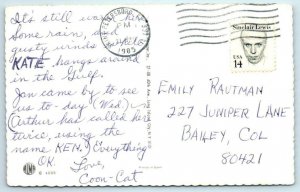 It's still warm here
Some rain, and
gusty winds
KATE hangs around
in the Gulf.
Jan came by to see
us to-day (Wed)
Arthur has called her
twice, using the
name KEN. Everything
OK. Love,
Coon-Cat
PM
1985
Sinclair Lewis
USA
14
EMILY RAUTMAN
227 JUNIPER LANE
BAILEY, COL
80421